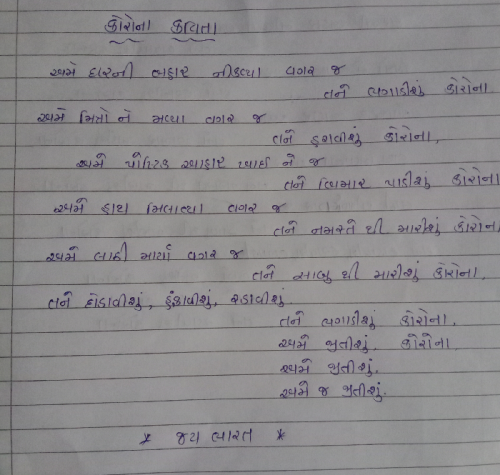 કોરોના કવિતા
અમે ઘરની બહાર નીકળ્યા વગર જ
તને ભગાડીશું કોરોના
અમે મિત્રો ને મળ્યા વગર જ
તને હરાવીશું કોરોના,
અમે પૌષ્ટિક આહાર ખાઈ ને જ
તને બિમાર પાડીશું કોરોના
અમે હાથ મિલાવ્યા વગર જ
તને નમસ્તે થી મારીશું કોરોના,
અમે લાઠી માર્યા વગર જ
તને સાબુ થી મારીશું કોરોના,
તને દોડાવીશું, હંફાવીશું, રડાવીશું
તને ભગાડીશું કોરોના,
અમે જીતીશું, કોરોના
અમે જીતીશું,
અમે જ જીતીશું.
* જય ભારત *